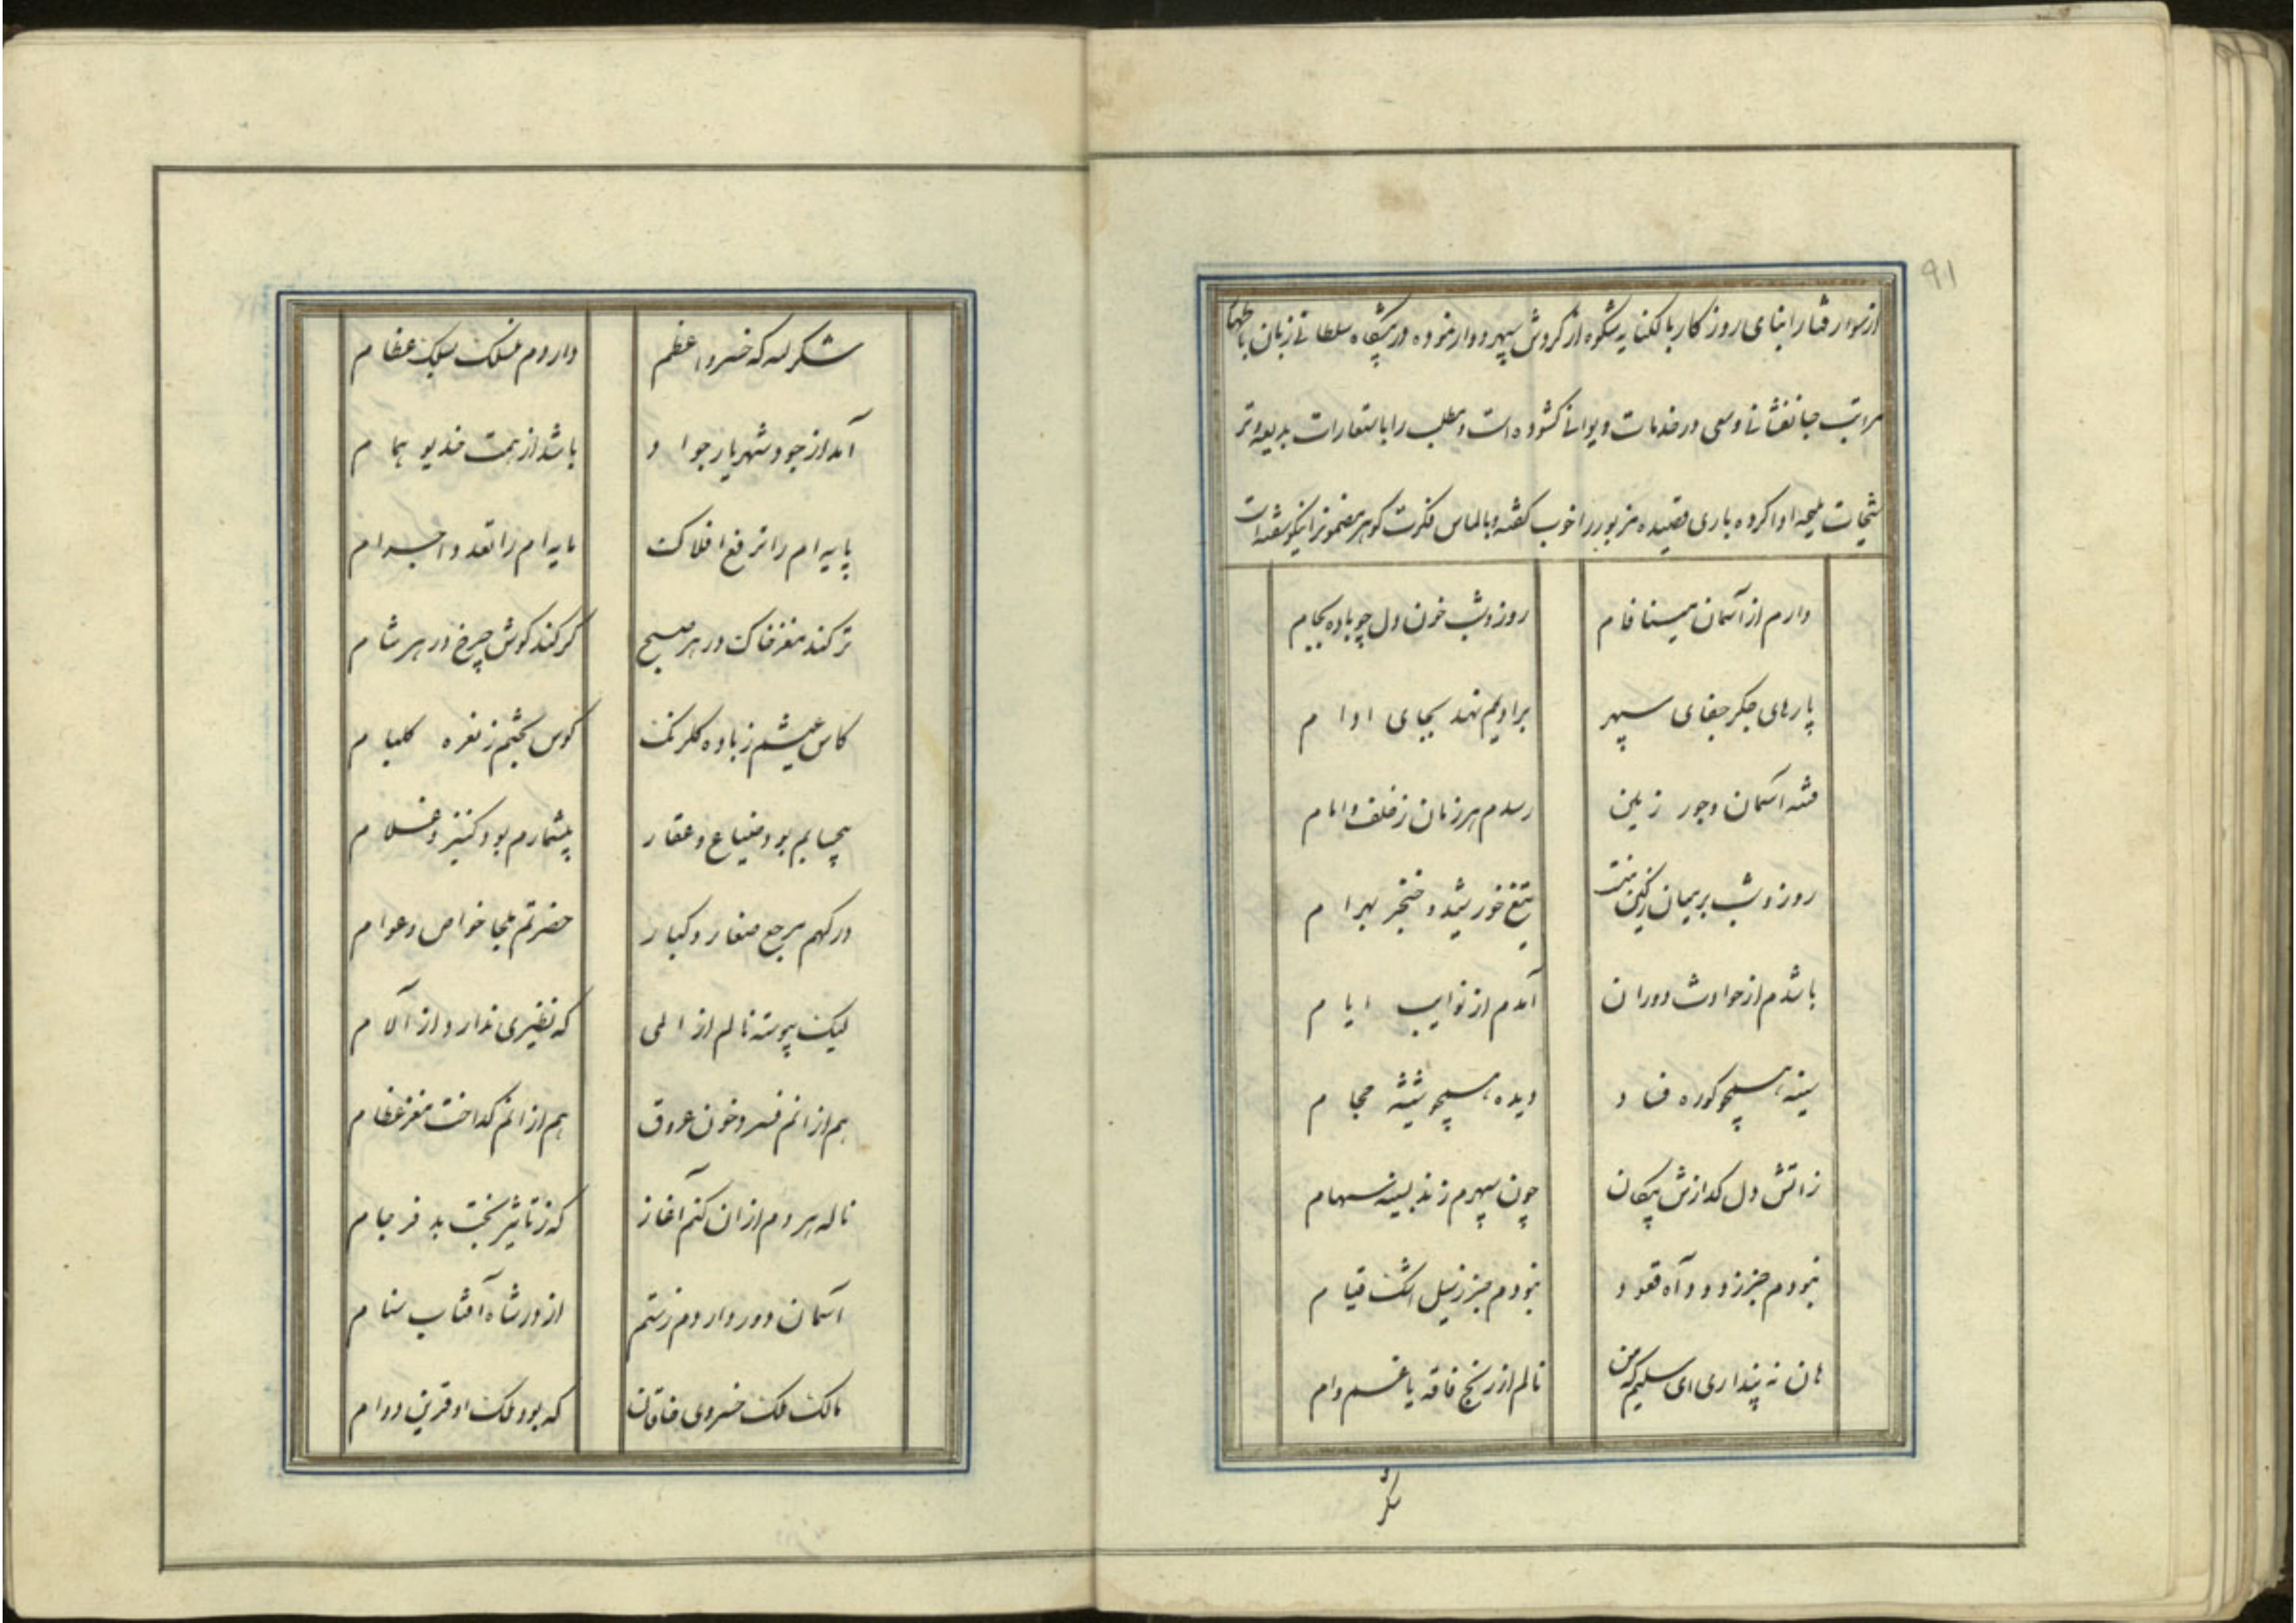 ۹۱
از سوء رفتار ابنای روزگار بالکنایه شکوه از گردش سپهر دوار نموده در پیشگاه سلطانی زبان باظهار
مراتب جانفشانی و سعی در خدمات دیوانی کشوده است و مطلب را باستعارات بدیعه و تر
شیحات ملیحه ادا کرده باری قصیده مزبور را خوب گفته و بالماس فکرت گوهر مضمونرا نیکو سفته است
دارم از آسمان مینا فام روز و شب خون دل چو باده بجام
پارهای جگر جفای سپهر برادیم نهد بجای ادام
فتنه آسمان و جور زمین رسدم هر زمان ز خلف و امام
روز و شب بر میان زکین منت تیغ خورشید و خنجر بهرام
باشدم از حوادث دوران آمدم از نوایب ایام
سینه همچو کوره فصاد دیده همچو شیشه حجام
زآتش دل گدازش پیکان چون سپهرم زند بسینه سهام
نبودم جز ز دود آه قعود نبودم جز ز سیل اشک قیام
هان نه پنداری ای سلیم که من نالم از رنج فاقه یا غم وام
شکر
شکر لله که خسرو اعظم داردم منسلک بسلک عظام
آمد از جود شهریار جواد باشد از همت خدیو همام
پایه ام را ترفع افلاک مایه ام را تعدد اجرام
تر کند مغز خاک در هر صبح کر کند گوش چرخ در هر شام
کاس عیشم ز باده گلرنگ کوس بختم ز نعره کلیام
بیحسابم بود ضیاع و عقار بیشمارم بود کنیز و غلام
درگهم مرجع صغار و کبار حضرتم ملجا خواص و عوام
لیک پیوسته نالم از المی که نظیری ندارد از آلام
هم از انم فسرد خون عروق هم از انم گداخت مغز عظام
ناله هر دم از ان کنم آغاز که ز تاثیر بخت بد فرجام
آسمان دور داردم ز ستم از در شاه آفتاب سنام
مالک ملک خسروی خاقان که بود ملک او قرین دوام